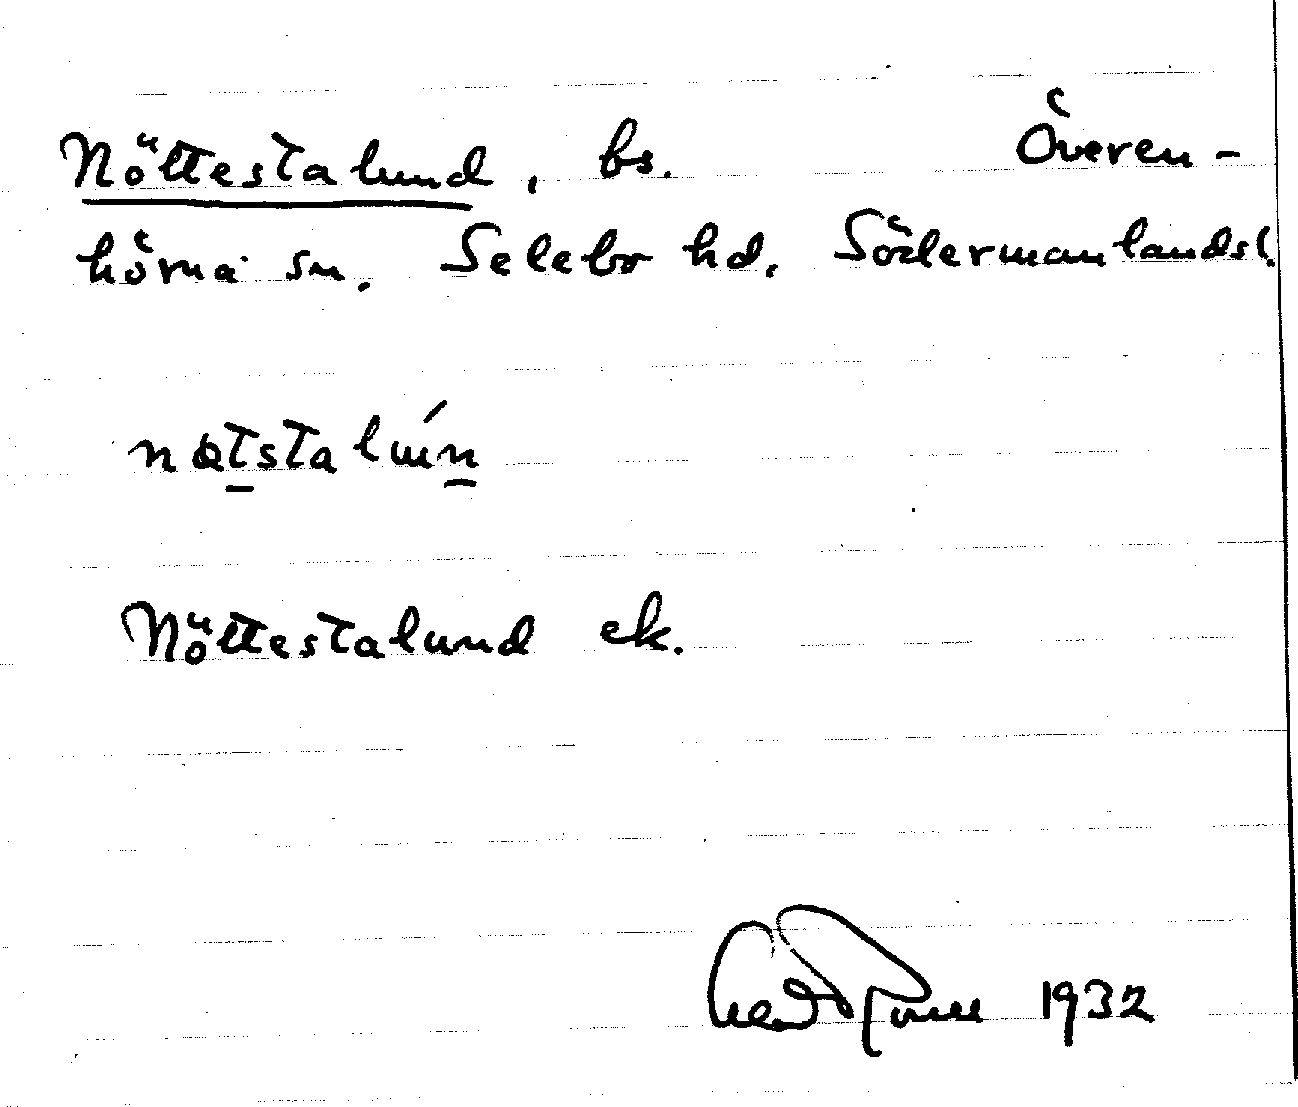 Nöttestalund, bs. Överen-
hörna sn. Selebo hd. Södermanlands l.
Nöttestalund ek.
1932